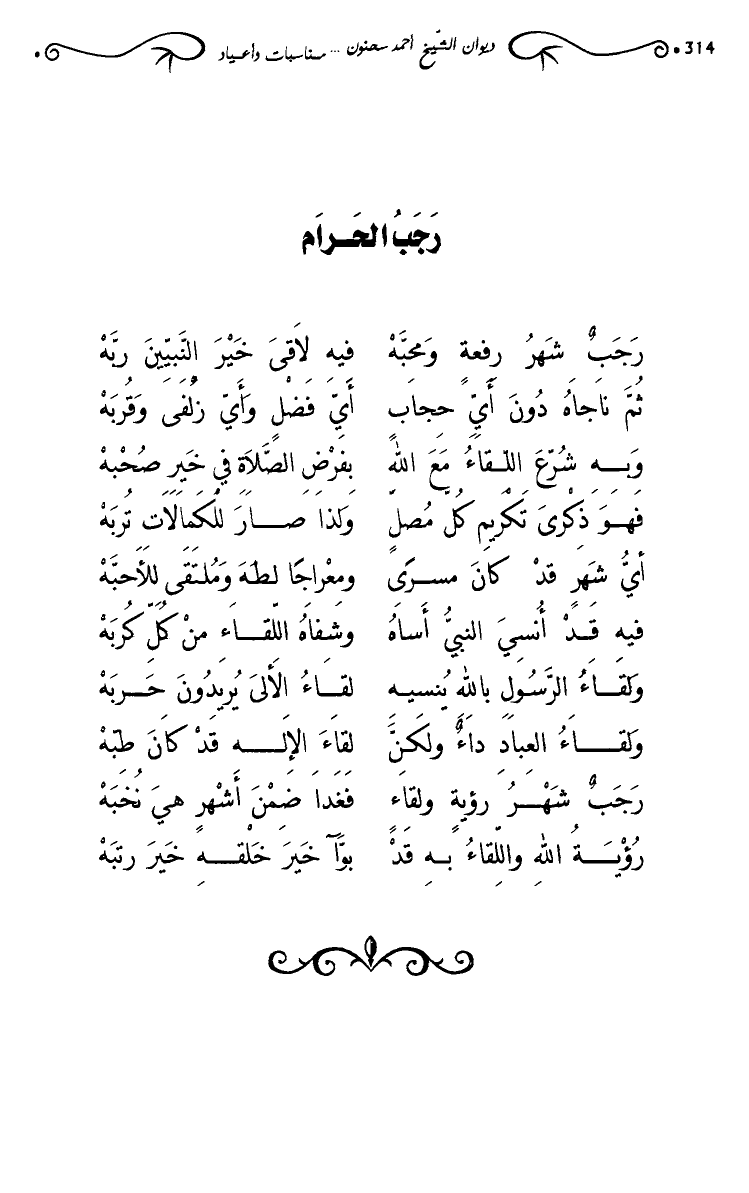 314 ديوان الشيخ أحمد سحنون ... مناسبات وأعياد
رَجَبُ الحَرَام
رَجَبٌ شَهْرُ رِفعةٍ وَمَحبَّهْ فيهِ لاَقىَ خَيْرَ النَّبيّينَ ربَّهْ
ثُمَّ ناجاهُ دُونَ أَيِّ حجابٍ أَيّ فَضْلٍ وَأَيّ زُلْفى وَقُربَهْ
وَبِهِ شُرّعَ اللّقاءُ مَعَ اللَّهِ بِفَرْضِ الصَّلاَةِ في خَيرِ صُحْبهْ
فَهوَ ذكْرىَ تَكْريمِ كُلّ مُصلٍّ وَلَذا صارَ لِلْكَمالاَتِ تُربَهْ
أَيُّ شَهرٍ قدْ كانَ مسرًى ومعْراجًا لطَهَ وَمُلتَقى لِلأَحبَّهْ
فيهِ قَدْ أُنسيَ النبيُّ أَساهُ وشفاهُ اللّقاء منْ كُلِّ كُربَهْ
وَلقاءُ الرَّسُولِ بِاللَّهِ يُنسيهِ لقاءُ الأُلىَ يُريدُونَ حَربَهْ
وَلقاءُ العبادِ داءٌ ولكنَّ لقاءَ الإِلهِ قَدْ كانَ طبّهْ
رَجَبٌ شَهْرُ رؤيةٍ ولقاءٍ فَغَدا ضمْنَ أَشْهرٍ هيَ نُخْبَهْ
رُؤْيَةُ اللَّهِ واللِّقاءُ بِهِ قَدْ بوَّآ خَيرَ خَلْقِهِ خَيرَ رتبَهْ